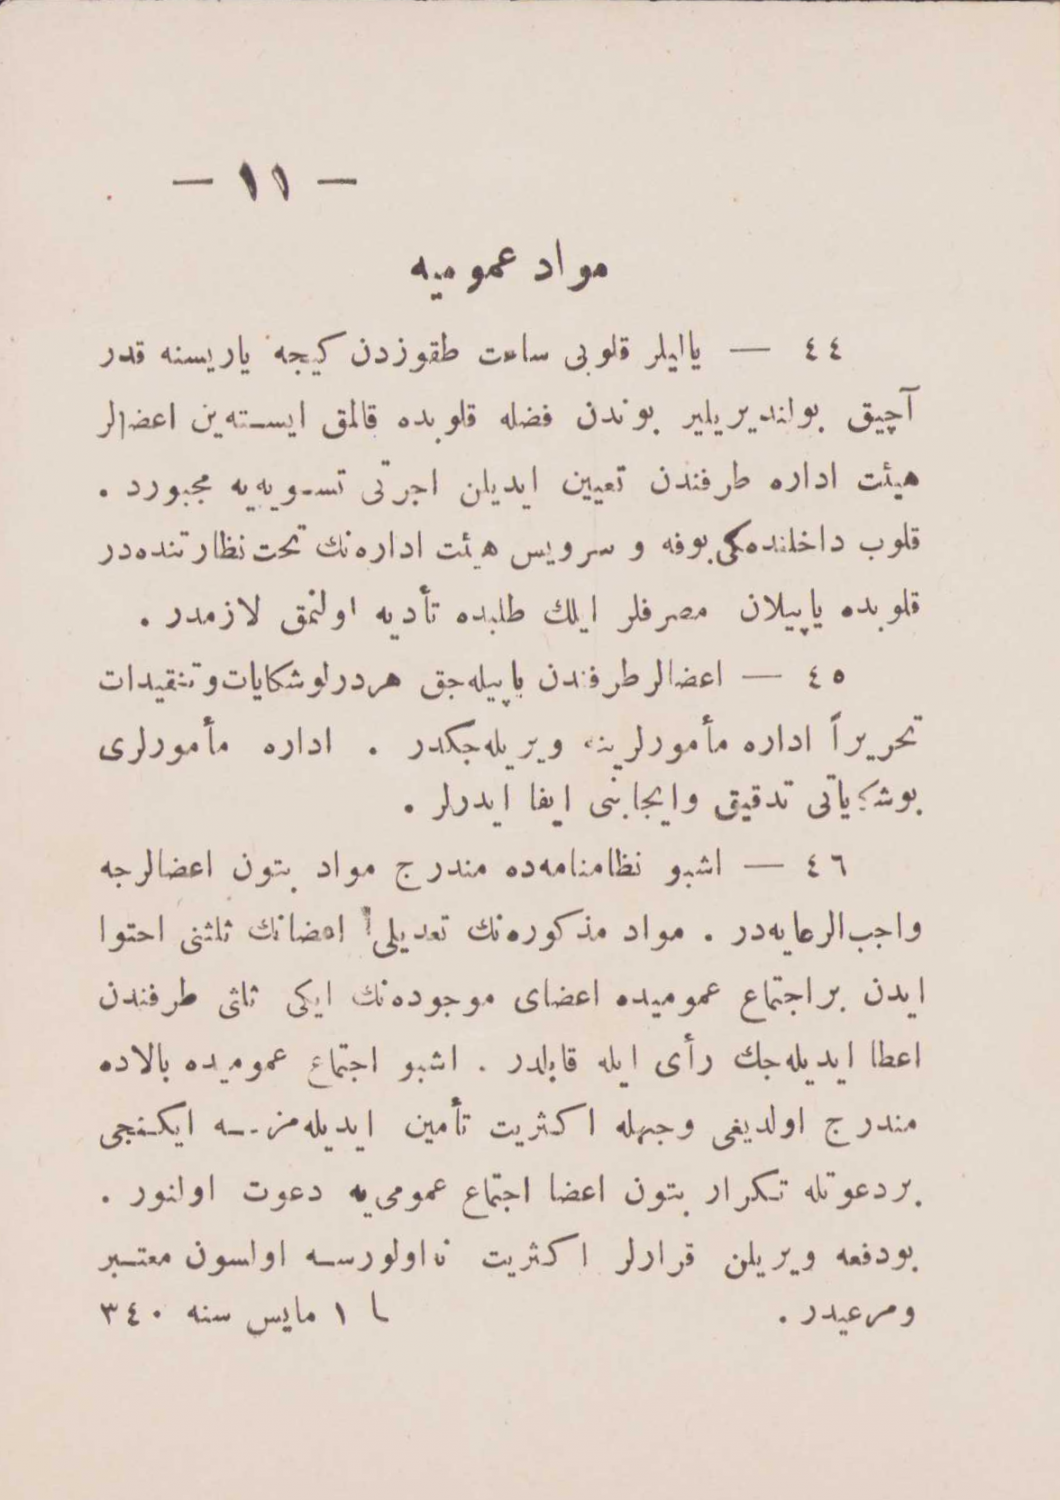 — ١١ —
مواد عموميه
٤٤ — ياليلر قلوبی ساعت طقوزدن كيجه ياريسنه قدر
آچيق بولنديريلير بوندن فضله قلوبده قالمق ايسته‌ين اعضالر
هيئت اداره طرفندن تعيين ايديلن اجرتی تسويه‌يه مجبوردر .
قلوب داخلنده‌كی بوفه و سرويس هيئت اداره‌نك تحت نظارتنده‌در
قلوبده ياپيلان مصرفلر ايلك طلبده تأديه اولنمق لازمدر .
٤٥ — اعضالر طرفندن ياپيله‌جق هردرلو شكايات و تنقيدات
تحريراً اداره مأمورلرينه ويريله‌جكدر . اداره مأمورلری
بوشكاياتی تدقيق وايجابنی ايفا ايدرلر .
٤٦ — اشبو نظامنامه‌ده مندرج مواد بتون اعضالرجه
واجب‌الرعايه‌در . مواد مذكوره‌نك تعديلی اعضانك ثلثنی احتوا
ايدن بر اجتماع عموميده اعضای موجوده‌نك ايكی ثلثی طرفندن
اعطا ايديله‌جك رأی ايله قابلدر . اشبو اجتماع عموميده بالاده
مندرج اولديغی وجهله اكثريت تأمين ايديله‌مزسه ايكنجی
بردعوتله تكرار بتون اعضا اجتماع عمومی‌يه دعوت اولنور .
بودفعه ويريلن قرارلر اكثريت نه اولورسه اولسون معتبر
ومرعيدر . ١ مايس سنه ٣٤٠